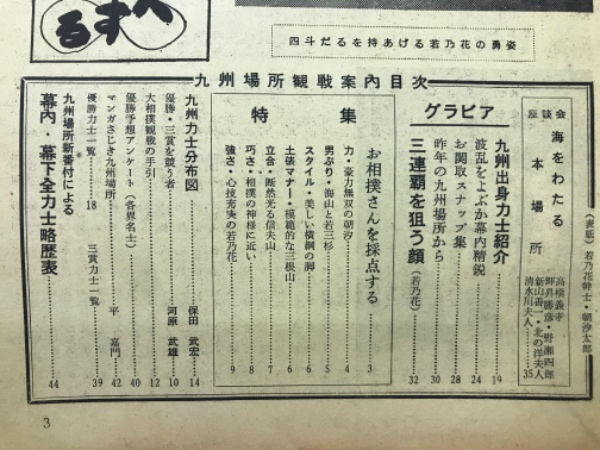 べする
四斗だるを持あげる若乃花の勇姿
九州場所観戦案内目次
(表紙) 若乃花幹士・朝汐太郎
座談会 海をわたる
本場所
高橋義孝
輝昇勝彦・野瀬四郎
新山善一・北の洋夫人
清水川夫人……35
グラビア
九州出身力士紹介……19
波乱をよぶか幕内精鋭……24
お関取スナップ集……28
昨年の九州場所から……30
三連覇を狙う顔(若乃花)……32
特集
お相撲さんを採点する……3
力・豪力無双の朝汐……4
男ぶり・海山と若三杉……5
スタイル・美しい横綱の脚……6
土俵マナー・模範的な三根山……6
立合・断然光る信夫山……7
巧さ・相撲の神様に近い……8
強さ・心技充実の若乃花……9
九州力士分布図……保田 武宏 14
優勝・三賞を競う者……河原 武雄 10
大相撲観戦の手引……12
優勝予想アンケート(各界名士)……40
マンガさじき九州場所……平 嘉門 42
優勝力士一覧……18 三賞力士一覧……39
九州場所新番付による
幕内・幕下全力士略歴表……44
3